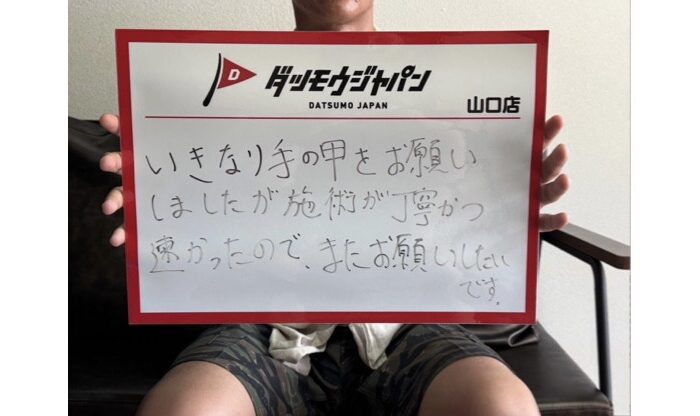 D
ダツモウジャパン
DATSUMO JAPAN
山口店
いきなり手の甲をお願い
しましたが施術が丁寧かつ
速かったので、またお願いしたい
です。